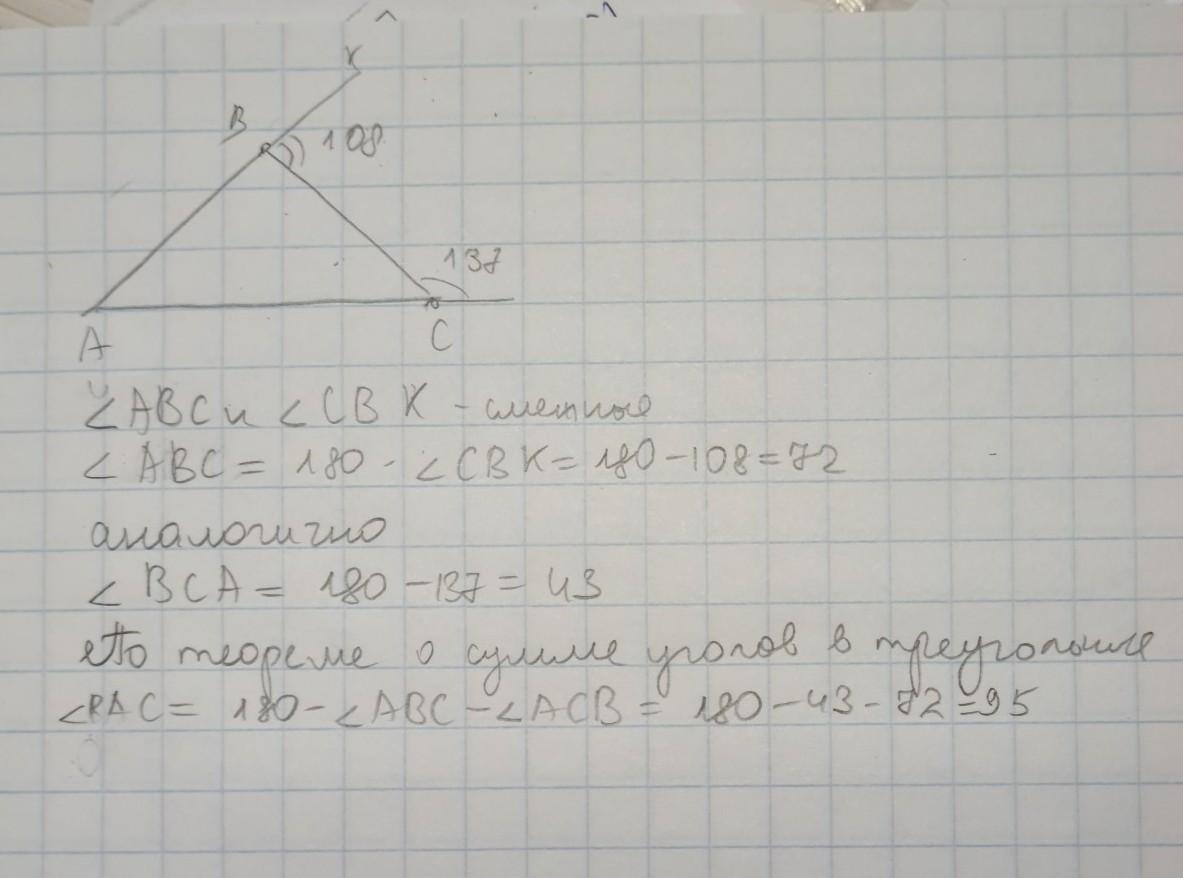 K
B
108
137
A
C
∠ABC и ∠CBK - смежные
∠ABC = 180 - ∠CBK = 180 - 108 = 72
аналогично
∠BCA = 180 - 137 = 43
По теореме о сумме углов в треугольнике
∠BAC = 180 - ∠ABC - ∠ACB = 180 - 43 - 72 = 95